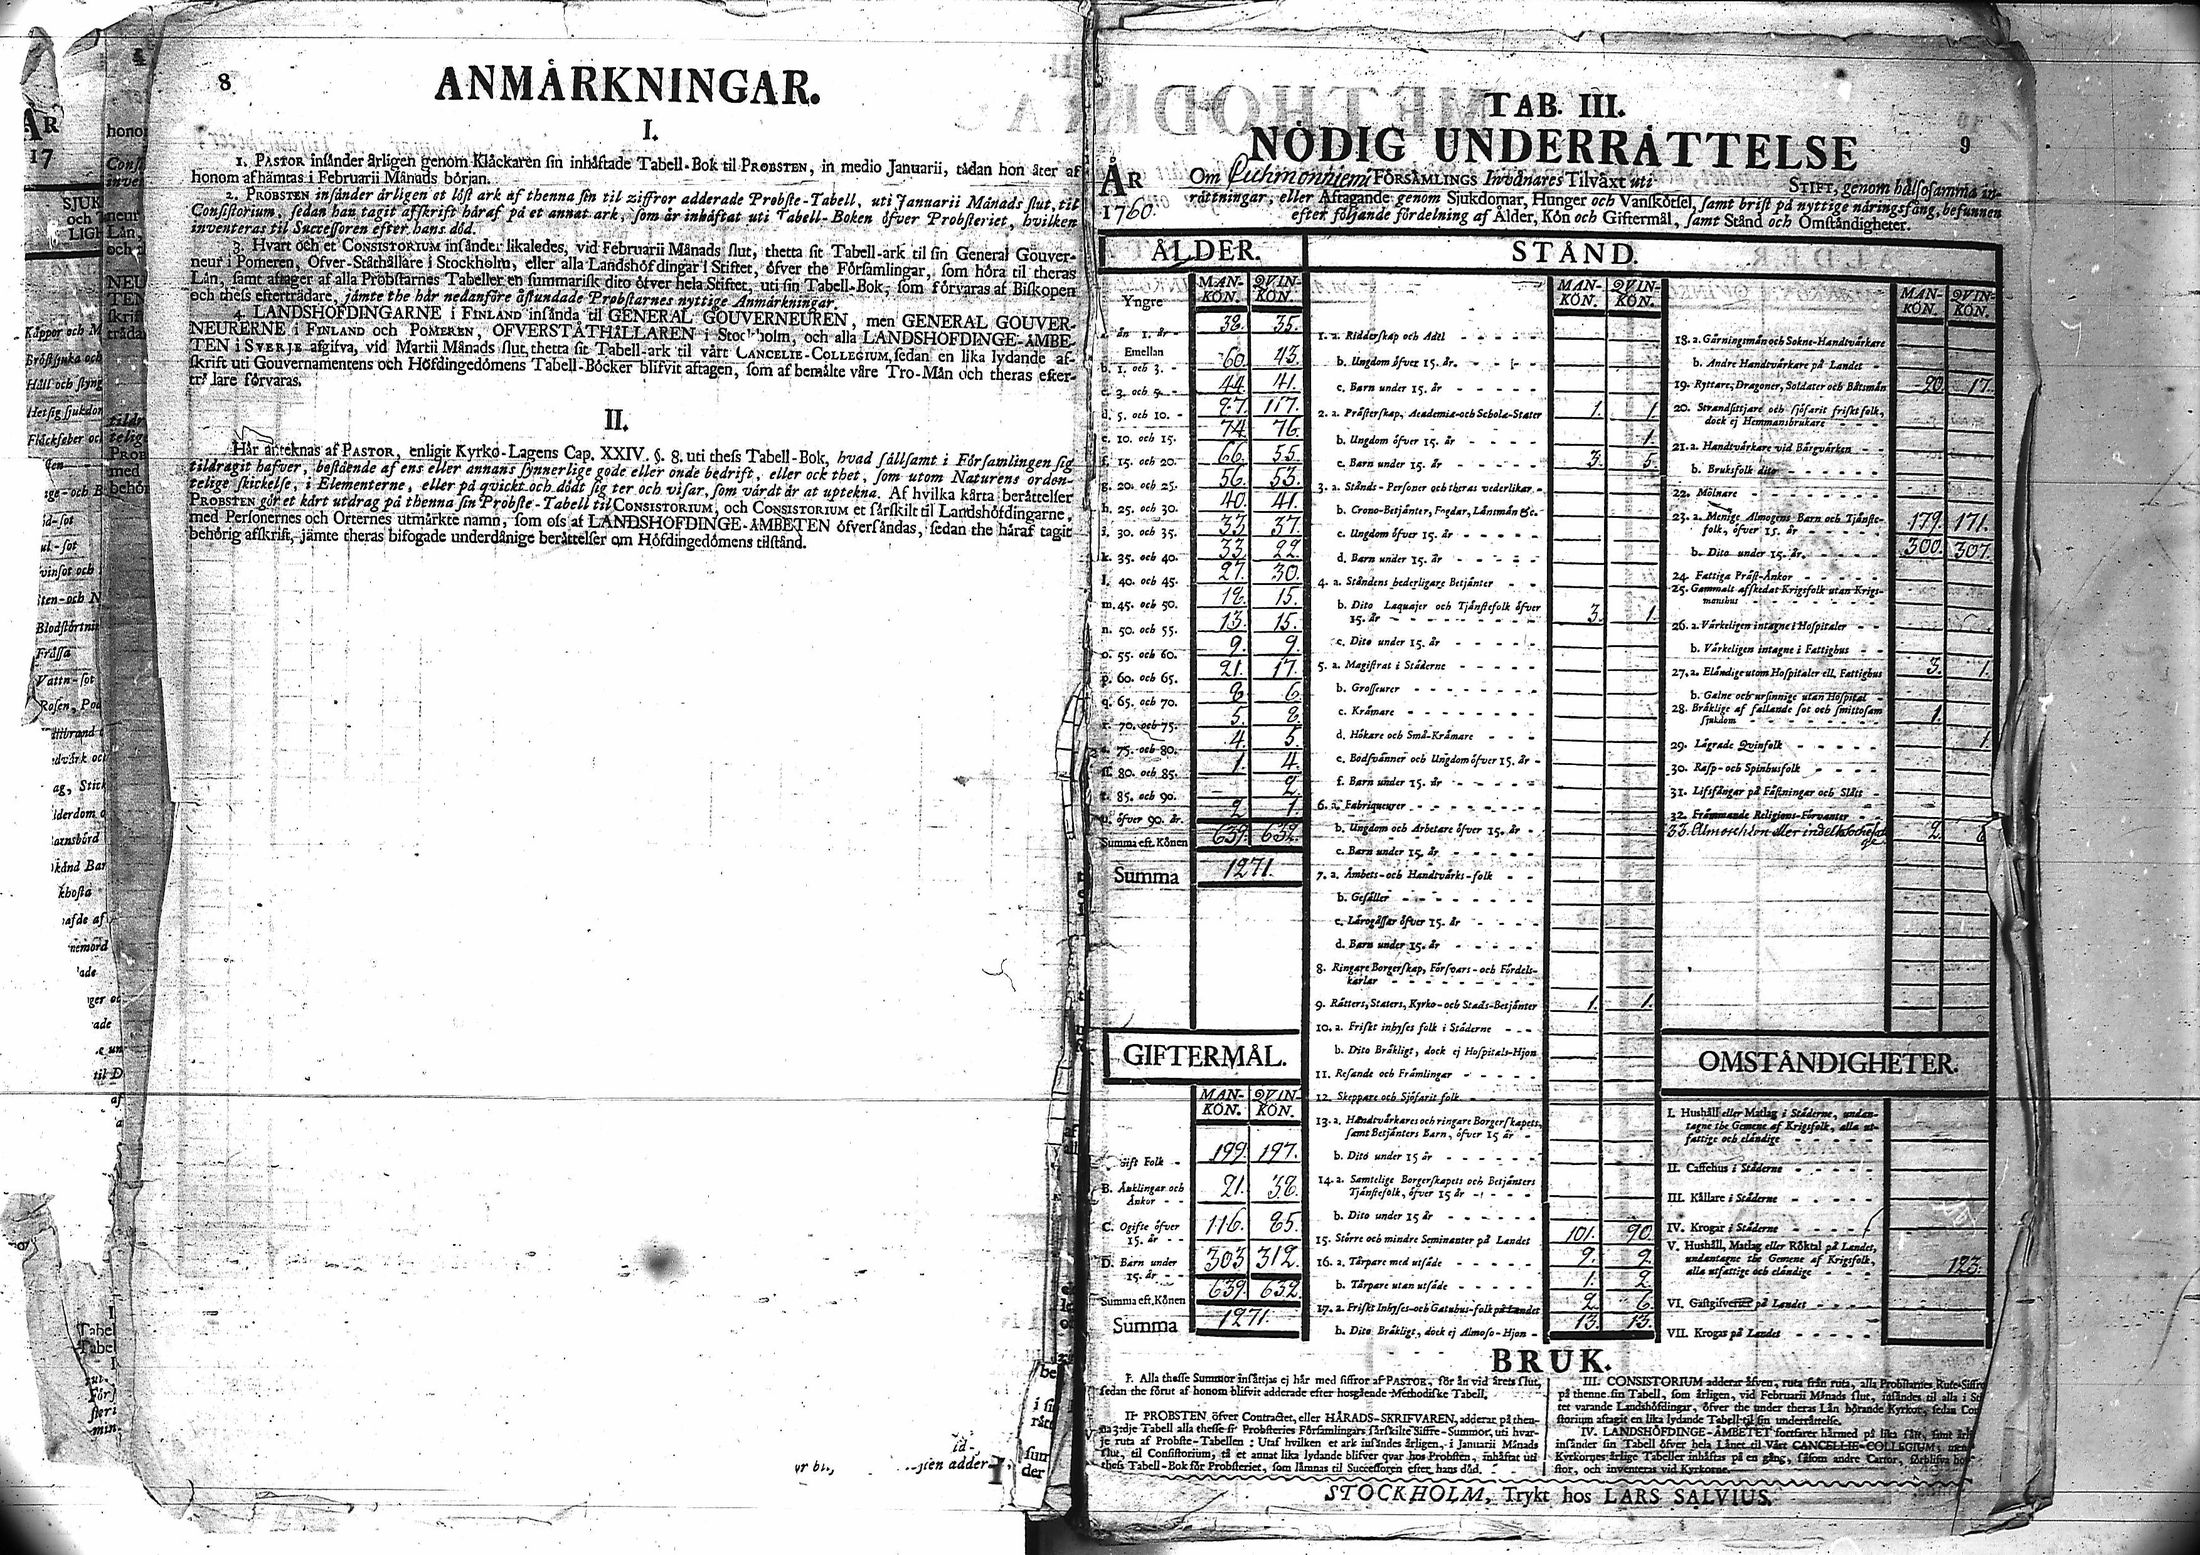 8
ANMÄRKNINGAR.
I.
1. PASTOR insänder ärligen genom Klåckaren sin inhäftade Tabell-Bok til PROBSTEN, in medio Januarii, tådan hon åter af
honom afhämtas i Februarii Månads början.
2. PROBSTEN insänder årligen et löst ark af thenna sin til ziffror adderade Probste-Tabell, uti Januarii Månads slut, til
Consistorium, sedan han tagit affskrift häraf på et annat ark, som är inhäftat uti Tabell-Boken öfver Probsteriet, hvilken
inventeras til Successoren efter hans död.
3. Hvart och et CONSISTORIUM insänder likaledes, vid Februarii Månads slut, thetta sit Tabell-ark til sin General Gouver-
neur i Pomeren, Öfver-Ståthållare i Stockholm, eller alla Landshöfdingar i Stiftet, öfver the Församlingar, som höra til theras
Län, samt aftager af alla Probstarnes Tabeller en summarisk dito öfver hela Stiftet, uti sin Tabell-Bok, som förvaras af Biskopen
och thess efterträdare, jämte the här nedanföre åstundade Probstarnes nyttige Anmärkningar.
4. LANDSHÖFDINGARNE i FINLAND insända til GENERAL GOUVERNEUREN, men GENERAL GOUVER-
NEURERNE i FINLAND och POMEREN, ÖFVERSTÅTHÅLLAREN i Stockholm, och alla LANDSHÖFDINGE-ÄMBE-
TEN i SVERJE afgifva, vid Martii Månads slut, thetta sit Tabell-ark til vårt CANCELIE-COLLEGIUM, sedan en lika lydande af-
skrift uti Gouvernamentens och Höfdingedömens Tabell-Böcker blifvit aftagen, som af bemälte våre Tro-Män och theras efter-
trädare förvaras.
II.
Här anteknas af PASTOR, enligit Kyrko-Lagens Cap. XXIV. §. 8. uti thess Tabell-Bok, hvad sällsamt i Församlingen sig
tildragit hafver, bestående af ens eller annans synnerlige gode eller onde bedrift, eller ock thet, som utom Naturens orden-
telige skickelse, i Elementerne, eller på qvickt och dödt sig ter och visar, som värdt är at uptekna. Af hvilka kårta berättelser
PROBSTEN gör et kårt utdrag på thenna sin Probste-Tabell til CONSISTORIUM, och CONSISTORIUM et särskilt til Landshöfdingarne,
med Personernes och Orternes utmärkte namn, som oss af LANDSHÖFDINGE-ÄMBETEN öfversändas, sedan the häraf tagit
behörig afskrift, jämte theras bifogade underdånige berättelser om Höfdingedömens tilstånd.
9
TAB. III.
NÖDIG UNDERRÄTTELSE
ÅR 1760.
Om FÖRSAMLINGS Invånares Tilväxt uti STIFT, genom hälsosamma in-
rättningar, eller Aftagande genom Sjukdomar, Hunger och Vanskötsel, samt brist på nyttige näringsfång, befunnen
efter följande fördelning af Ålder, Kön och Giftermål, samt Stånd och Omständigheter.
ÅLDER.
MAN-KÖN. QVIN-KÖN.
Yngre än 1. år 38. 35.
Emellan
b. 1. och 3. 60. 43.
c. 3. och 5. 44. 41.
d. 5. och 10. 97. 117.
e. 10. och 15. 74. 76.
f. 15. och 20. 66. 55.
g. 20. och 25. 56. 53.
h. 25. och 30. 40. 41.
i. 30. och 35. 33. 37.
k. 35. och 40. 33. 22.
l. 40. och 45. 27. 30.
m. 45. och 50. 18. 15.
n. 50. och 55. 13. 15.
o. 55. och 60. 9. 9.
p. 60. och 65. 21. 17.
q. 65. och 70. 8. 6.
r. 70. och 75. 5. 8.
s. 75. och 80. 4. 5.
ss. 80. och 85. 1. 4.
t. 85. och 90. 2.
u. öfver 90. år. 2. 1.
Summa eft. Könen 639. 632.
Summa 1271.
GIFTERMÅL.
MAN-KÖN. QVIN-KÖN.
Gift Folk 199. 197.
B. Änklingar och Änkor 21. 38.
C. Ogifte öfver 15. år 116. 85.
D. Barn under 15. år 303 312.
Summa eft. Könen 639. 632.
Summa 1271.
STÅND.
MAN-KÖN. QVIN-KÖN.
1. a. Ridderskap och Adel
b. Ungdom öfver 15. år.
c. Barn under 15. år
2. a. Prästerskap, Academiæ-och Scholæ-Stater 1. 1.
b. Ungdom öfver 15. år 1.
c. Barn under 15. år 3. 5.
3. a. Stånds-Personer och theras vederlikar
b. Crono-Betjänter, Fogdar, Länsmän &c.
c. Ungdom öfver 15. år
d. Barn under 15. år
4. a. Ståndens bederligare Betjänter
b. Dito Laquajer och Tjänstefolk öfver 15. år 3. 1.
c. Dito under 15. år
5. a. Magistrat i Städerne
b. Grosseurer
c. Krämare
d. Hökare och Små-Krämare
e. Bodsvänner och Ungdom öfver 15. år
f. Barn under 15. år
6. a. Fabriqueurer
b. Ungdom och Arbetare öfver 15. år
c. Barn under 15. år
7. a. Ämbets-och Handtvärks-folk
b. Gesäller
c. Lärogåssar öfver 15. år
d. Barn under 15. år
8. Ringare Borgerskap, Försvars-och Fördels-karlar
9. Rätters, Staters, Kyrko-och Stads-Betjänter 1. 1.
10. a. Friskt inhyses folk i Städerne
b. Dito Bräkligt, dock ej Hospitals-Hjon
11. Resande och Främlingar
12. Skeppare och Sjöfarit folk
13. a. Handtvärkares och ringare Borgerskapets, samt Betjänters Barn, öfver 15 år
b. Dito under 15 år
14. a. Samtelige Borgerskapets och Betjänters Tjänstefolk, öfver 15 år
b. Dito under 15 år
15. Större och mindre Seminanter på Landet 101. 90.
16. a. Tårpare med utsäde 9. 2.
b. Tårpare utan utsäde 1. 2.
17. a. Friskt Inhyses-och Gatuhus-folk på Landet 2. 6.
b. Dito Bräkligt, dock ej Almoso-Hjon 13. 13.
MAN-KÖN. QVIN-KÖN.
18. a. Gärningsmän och Sokne-Handtvärkare
b. Andre Handtvärkare på Landet
19. Ryttare, Dragoner, Soldater och Båtsmän 20. 17.
20. Strandsittjare och sjöfarit friskt folk, dock ej Hemmansbrukare
21. a. Handtvärkare vid Bärgvärken
b. Bruksfolk dito
22. Mölnare
23. a. Menige Almogens Barn och Tjänste-folk, öfver 15. år 179. 171.
b. Dito under 15. år. 300. 307.
24. Fattiga Präst-Änkor
25. Gammalt afskedat Krigsfolk utan Krigs-manshus
26. a. Värkeligen intagne i Hospitaler
b. Värkeligen intagne i Fattighus
27. a. Eländige utom Hospitaler ell. Fattighus 3. 1.
b. Galne och ursinnige utan Hospital
28. Bräklige af fallande sot och smittosam sjukdom 1.
29. Lägrade Qvinfolk 1.
30. Rasp-och Spinhusfolk
31. Lifsfångar på Fästningar och Slått
32. Främmande Religions-Förvanter
33. eller 2. 8
OMSTÄNDIGHETER.
I. Hushåll eller Matlag i Städerne, undan-
tagne the Gemene af Krigsfolk, alla ut-
fattige och eländige
II. Caffehus i Städerne
III. Källare i Städerne
IV. Krogar i Städerne
V. Hushåll, Matlag eller Röktal på Landet,
undantagne the Gemene af Krigsfolk,
alla utfattige och eländige 123.
VI. Gästgifverier på Landet
VII. Krogar på Landet
BRUK.
I. Alla thesse Summor insättjas ej här med siffror af PASTOR, för än vid årets slut,
sedan the förut af honom blifvit adderade efter hosgående Methodiske Tabell.
II. PROBSTEN öfver Contractet, eller HÄRADS-SKRIFVAREN, adderar på then-
na 3:dje Tabell alla thesse sit Probsteries Församlingars särskilte Siffre-Summor, uti hvar-
je ruta af Probste-Tabellen: Utaf hvilken et ark insändes årligen, i Januarii Månads
slut, til Consistorium, tå et annat lika lydande blifver qvar hos Probsten, inhäftat uti
thess Tabell-Bok för Probsteriet, som lämnas til Successoren efter hans död.
III. CONSISTORIUM adderar äfven, ruta från ruta, alla Probstarnes Rute-Siffror
på thenne sin Tabell, som årligen, vid Februarii Månads slut, insändes til alla i Stif-
tet varande Landshöfdingar, öfver the under theras Län hörande Kyrkor, sedan Con-
storium aftagit en lika lydande Tabell til sin underrättelse.
IV. LANDSHÖFDINGE-ÄMBETET fortfarer härmed på lika sätt, samt årl
insänder sin Tabell öfver hela Länet til Vårt CANCELLIE-COLLEGIUM; men
Kyrkornes årlige Tabeller inhäftas på en gång, såsom andre Cartor, förblifva hos
stor, och inventeras vid Kyrkorne.
STOCKHOLM, Trykt hos LARS SALVIUS.